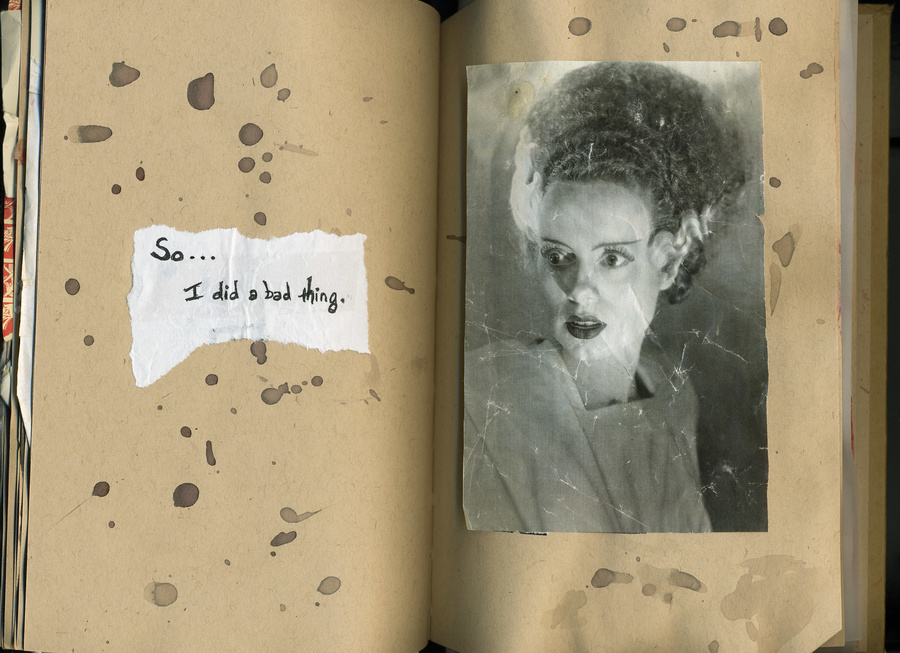 So...
I did a bad thing.